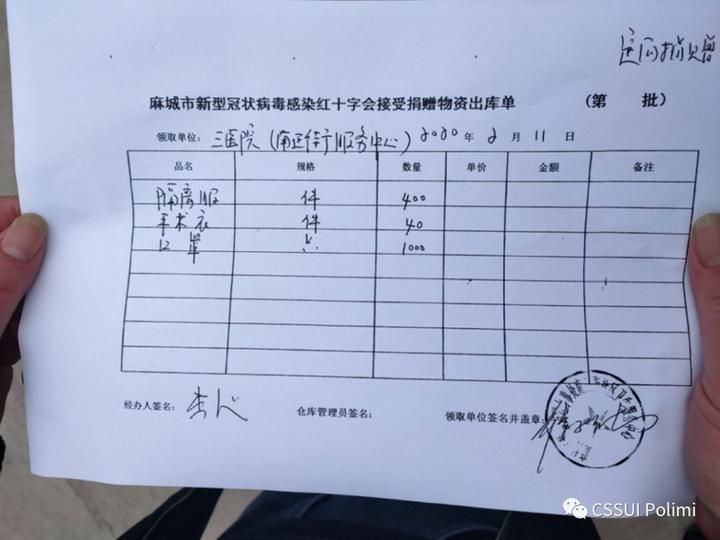 定向捐赠
麻城市新型冠状病毒感染红十字会接受捐赠物资出库单 (第 批)
领取单位: 三医院(南正街服务中心) 2020年2月11日
品名 规格 数量 单价 金额 备注
隔离服 件 400
手术衣 件 40
口罩 1000
经办人签名: 仓库管理员签名: 领取单位签名并盖章:
CSSUI Polimi